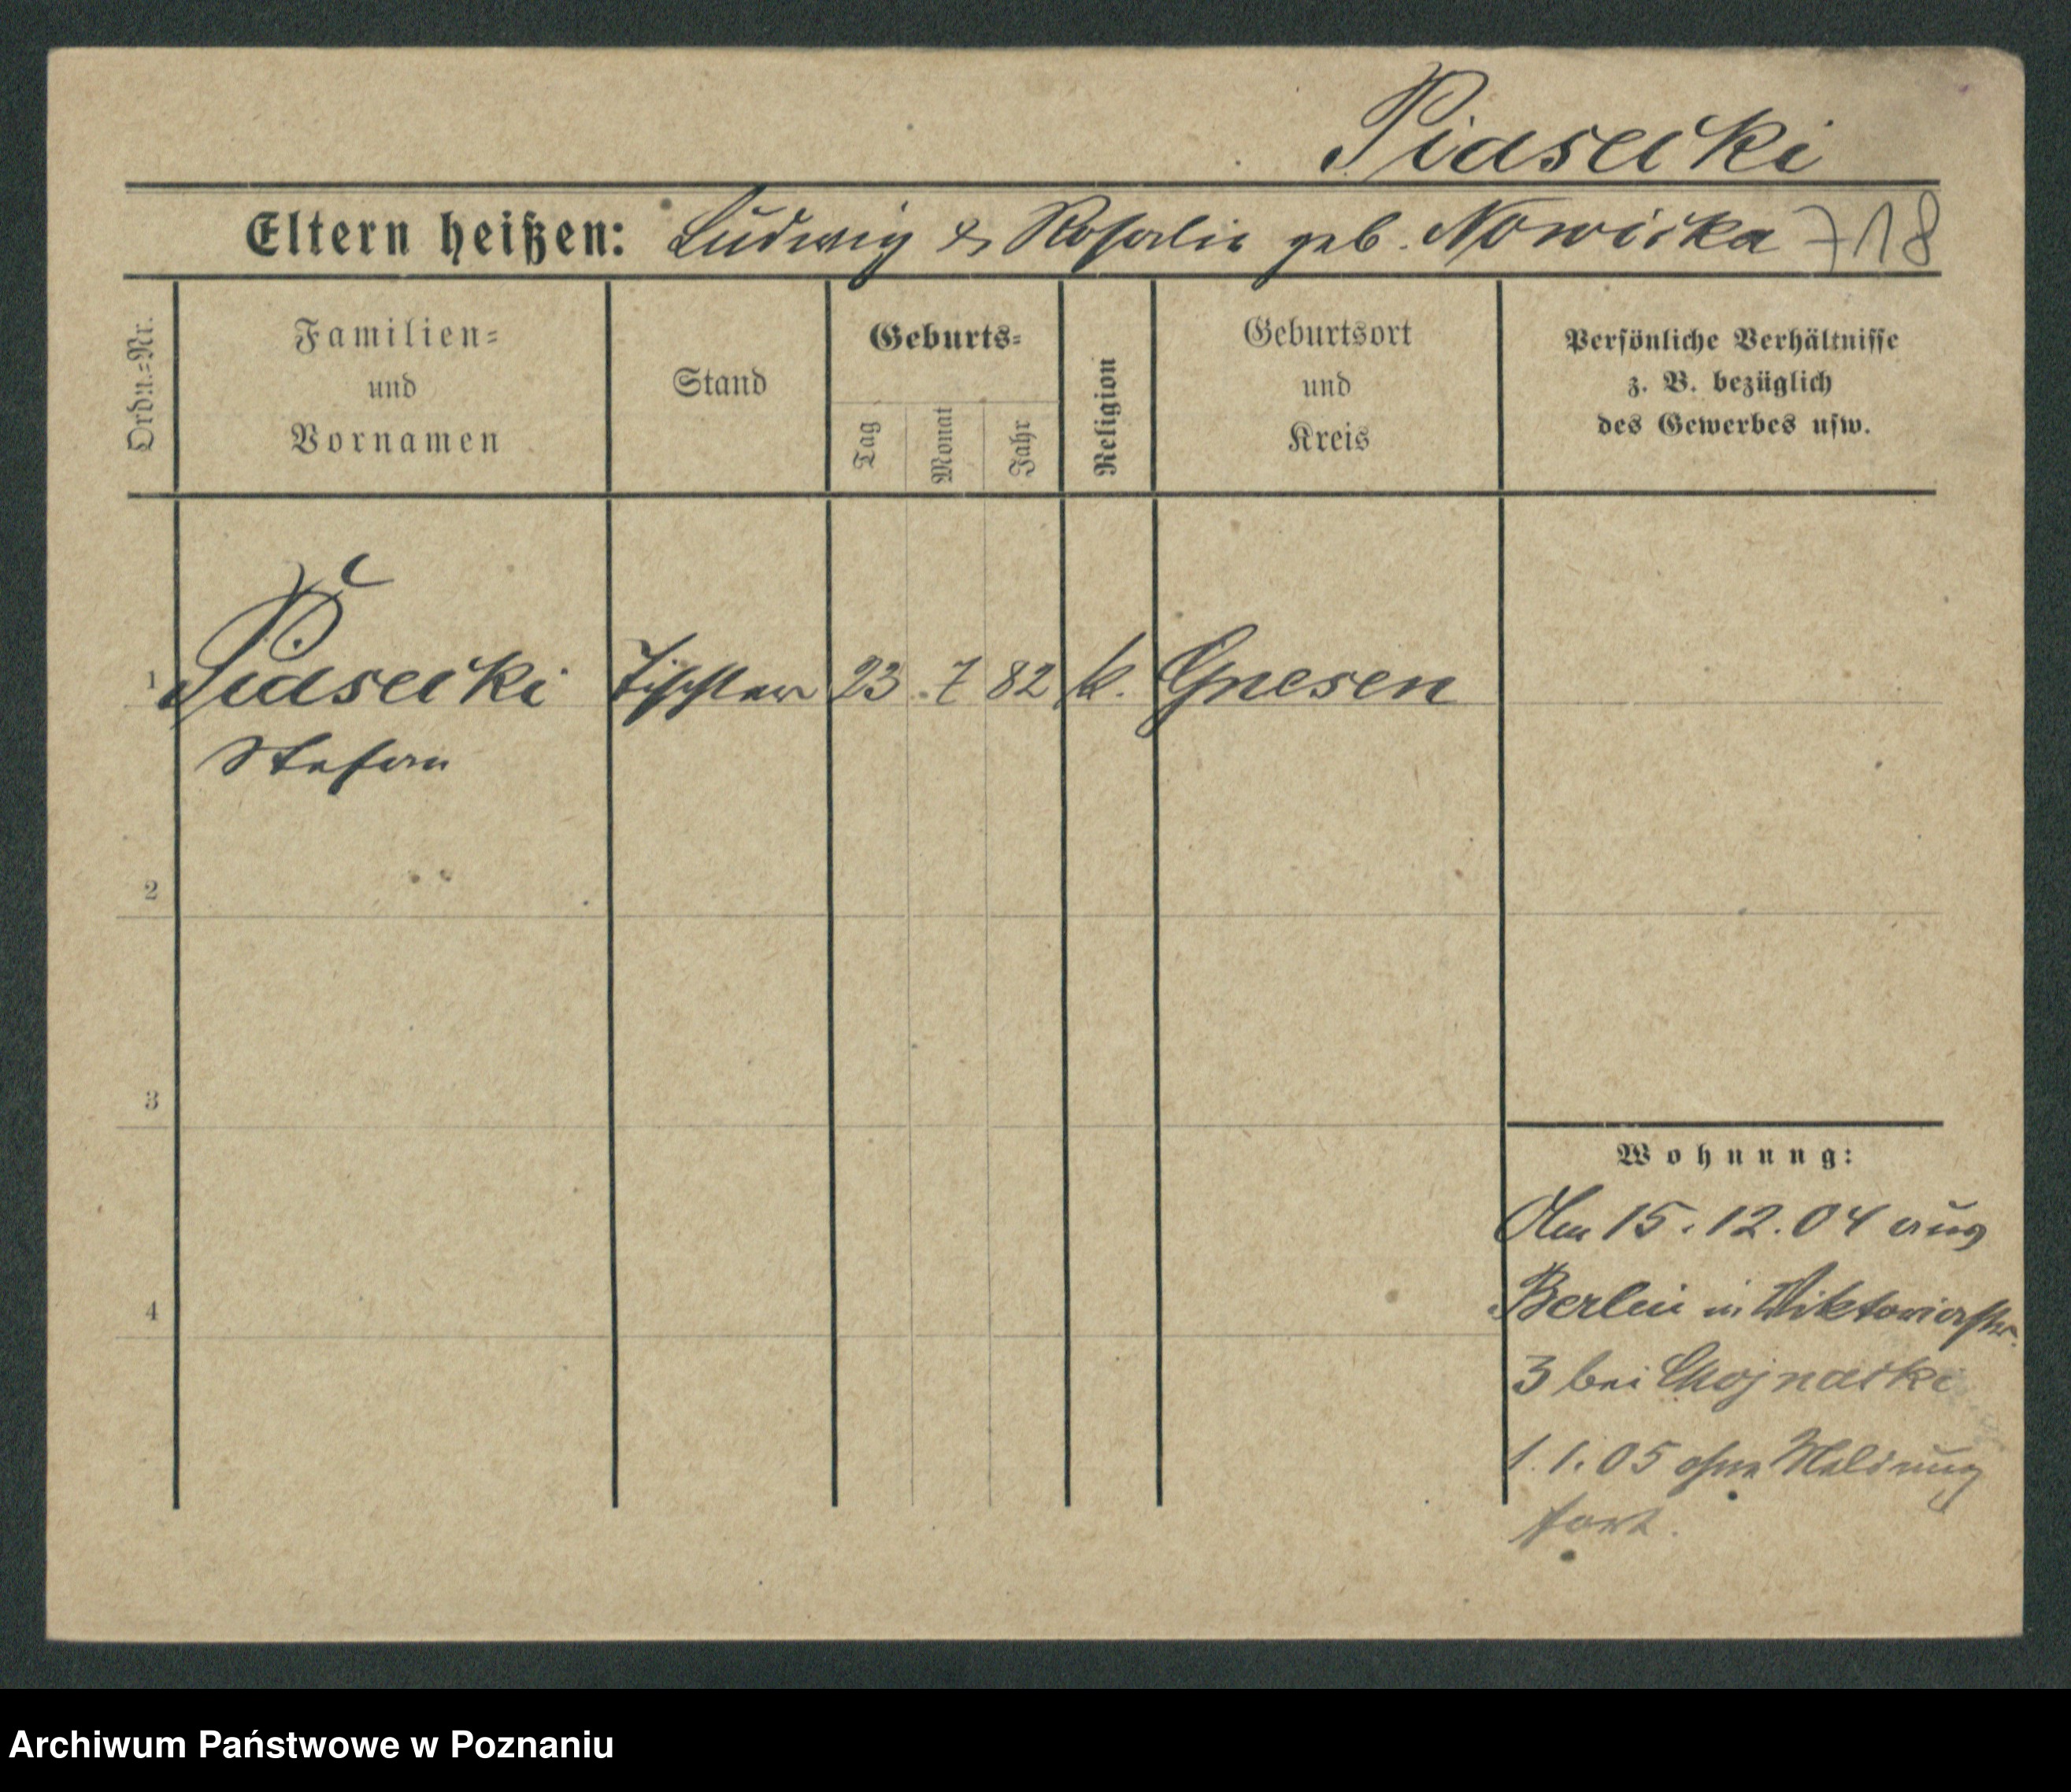 Piasecki
Eltern heißen: Ludwig & Rosalie geb. Nowicka 718
Ordn.-Nr.
Familien-
und
Vornamen
Stand
Geburts-
Tag
Monat
Jahr
Religion
Geburtsort
und
Kreis
Persönliche Verhältnisse
z. B. bezüglich
des Gewerbes usw.
1 Piasecki Tischler 23 . 7 82 k. Gnesen
Stefan
2
3
4
Wohnung:
Am 15.12.04 aus
Berlin in Viktoriastr.
3 bei Chojnacki
1.1.05 ohne Meldung
fort.
Archiwum Państwowe w Poznaniu